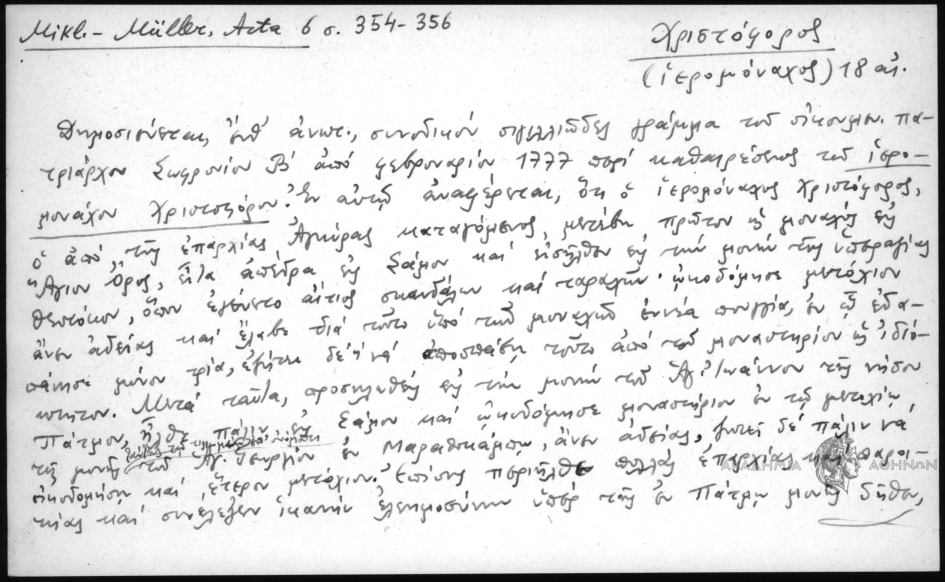 Mikl.- Müller, Acta 6 σ. 354-356
Χριστόφορος
(ἱερομόναχος) 18 αἰ.
Δημοσιεύεται, ἔνθ' ἀνωτ., συνοδικόν σιγιλλιῶδες γράμμα τοῦ οἰκουμεν. πα-
τριάρχου Σωφρονίου Β' ἀπό φεβρουαρίου 1777 περί καθαιρέσεως τοῦ ἱερο-
μονάχου Χριστοφόρου. Ἐν αὐτῷ ἀναφέρεται, ὅτι ὁ ἱερομόναχος Χριστόφορος,
ὁ ἀπό τῆς ἐπαρχίας Ἀγκύρας καταγόμενος, μετέβη πρῶτον ὡς μοναχός εἰς
Ἅγιον Ὄρος, εἶτα ἀπέδρα εἰς Σάμον καί εἰσῆλθεν εἰς τήν μονήν τῆς ὑπεραγίας
Θεοτόκου, ὅπου ἐγένετο αἴτιος σκανδάλων καί ταραχῶν· ᾠκοδόμησε μετόχιον
ἄνευ ἀδείας καί ἔλαβε διά τοῦτο ὑπό τῶν μοναχῶν ἐννέα πουγγία, ἐν ᾧ ἐδα-
πάνησε μόνον τρία, ἐζήτει δέ νά ἀποσπάσῃ τοῦτο ἀπό τοῦ μοναστηρίου ὡς ἰδιό-
κτητον. Μετά ταῦτα, προσκληθείς εἰς τήν μονήν τοῦ Ἁγ. Ἰωάννου τῆς νήσου
Πάτμου, ἦλθε πάλιν εἰς Σάμον καί ᾠκοδόμησε μοναστήριον ἐν τῷ μετοχίῳ
τῆς μονῆς τοῦ Ἁγ. Γεωργίου ἐν Μαραθοκάμπῳ, ἄνευ ἀδείας, ζητεῖ δέ πάλιν νά
οἰκοδομήσῃ καί ἕτερον μετόχιον. Ἐπίσης περιῆλθε πολλάς ἐπαρχίας καί παροι-
κίας καί συνέλεξεν ἱκανήν ἐλεημοσύνην ὑπέρ τῆς ἐν Πάτμῳ μονῆς δῆθεν,
ΑΚΑΔΗΜΙΑ ΑΘΗΝΩΝ